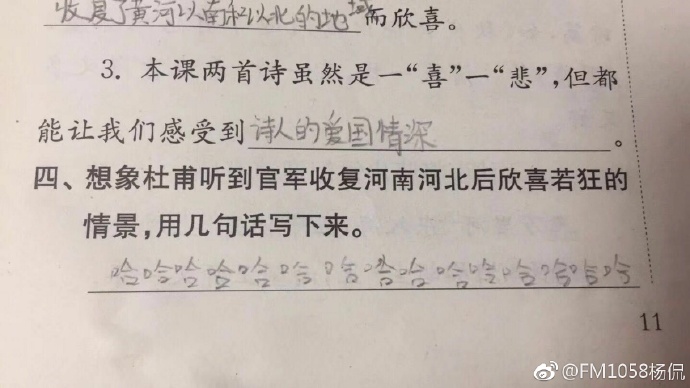 收复了黄河以南和以北的地域而欣喜。
3. 本课两首诗虽然是一“喜”一“悲”，但都
能让我们感受到诗人的爱国情深。
四、想象杜甫听到官军收复河南河北后欣喜若狂的
情景，用几句话写下来。
哈哈哈哈哈哈哈哈哈哈哈哈哈哈哈
11
@FM1058杨侃